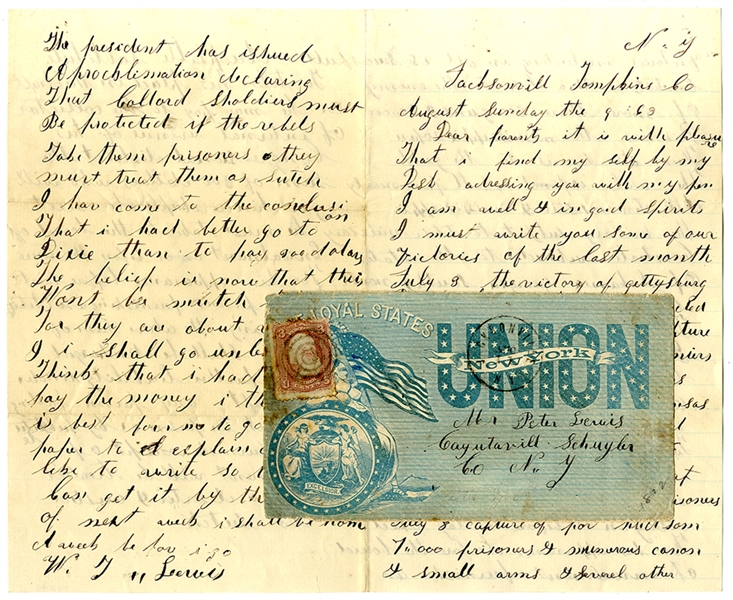 The president has ishued
A procklimation declaring
That Collord sholdiers must
Be protected if the rebels
Take them prisoners they
must treat them as sutch
I hav come to the conclusion
That i had better go to
Dixie than to pay 300 dolars
The belief is now that this
Wont be mutch
For they are about
I i shall go unles
Think that i had
pay the money i th
is best for me to go
paper to explain
like to write so
Can get it by th
Of next week i shall be hom
A week be for i go
W. T. Lewis
N. Y
Jacksonvill Tompkins Co
August Sunday the 9 63
Dear parents it is with pleasure
That i find my self by my
Desk adressing you with my pen
I am well & in good spirits
I must write you some of our
Victories of the last month
July 3 the victory of gettysburg
July 8 capture of por hudson
7,000 prisoners & numerous canon
& small arms & severel other
LOYAL STATES
UNION
New York
EXCELSIOR
Mr Peter Lewis
Cayutavill Schuyler
Co N. Y